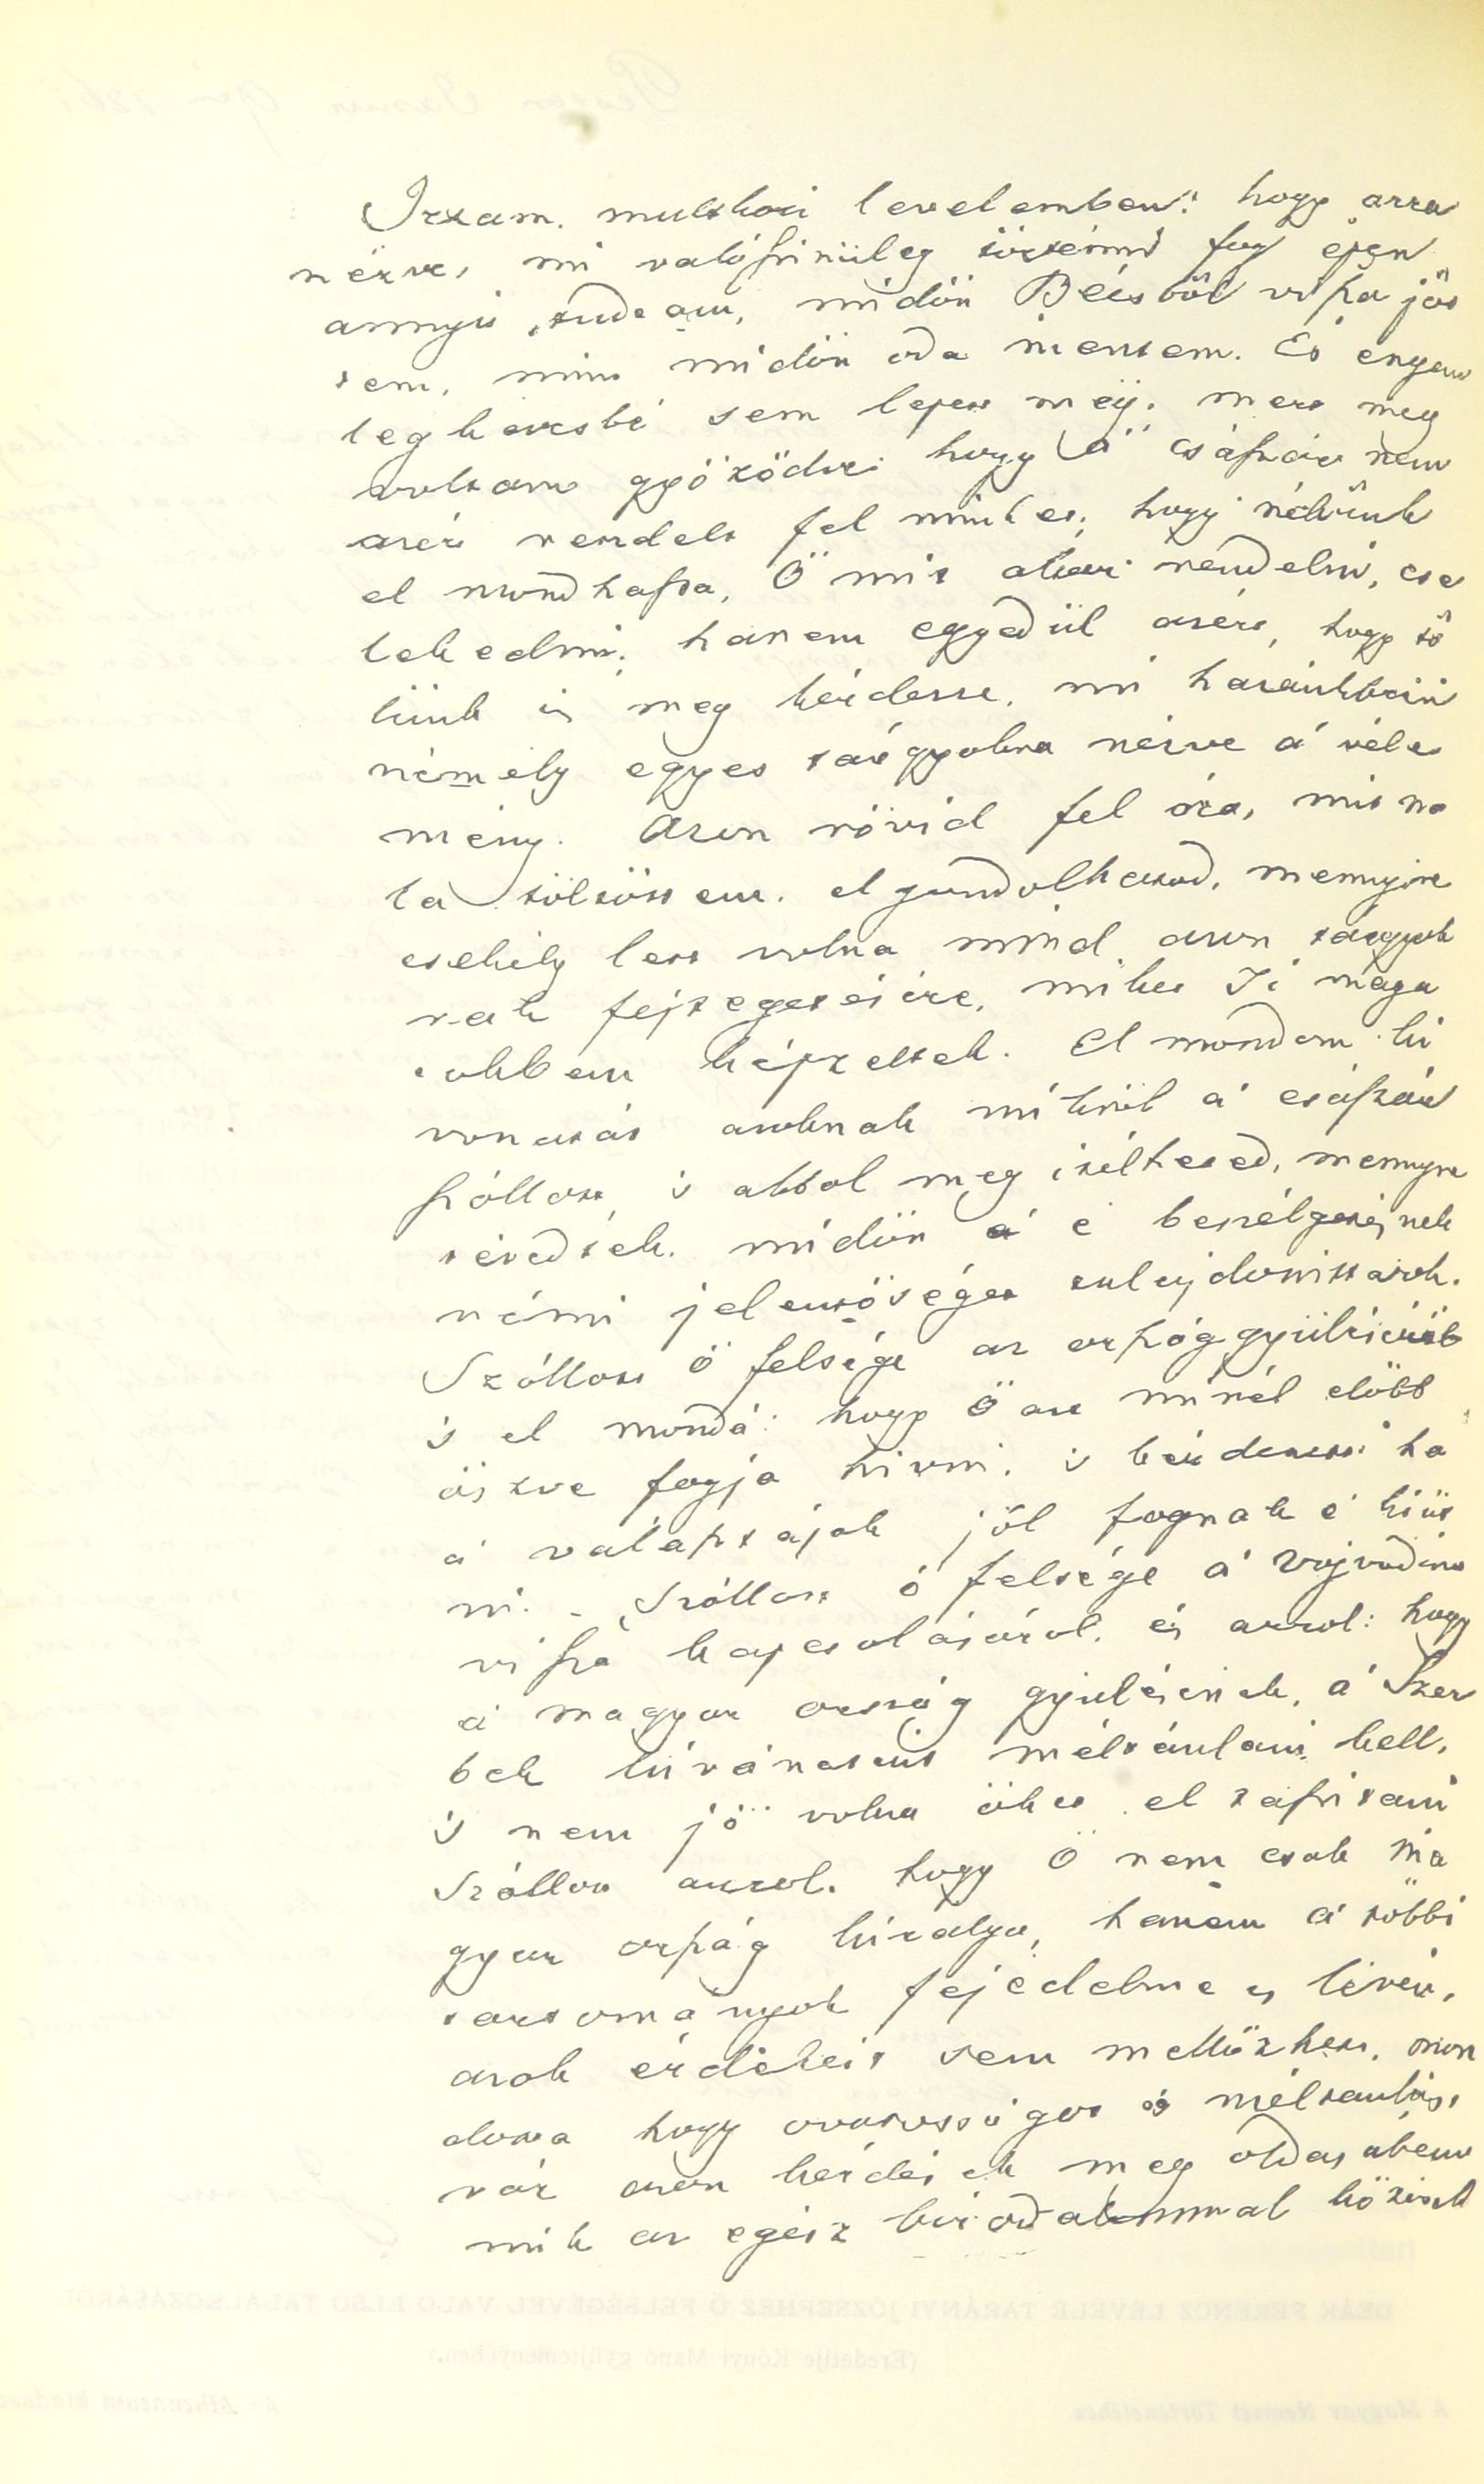 Irtam multkori levelemben: hogy arra
nézve, mi valószinüleg történni fog épen
annyit tudtam, midön Bécsböl vissza jöt
tem, mint midön oda mentem. És engem
legkevesbé sem lepett meg, mert meg
voltam gyözödve hogy a' császár nem
azért rendelt fel minket, hogy nékünk
el mondhassa, Ö mit akar rendelni, cse
lekedni, hanem egyedül azért, hogy tö
lünk is meg kérdezze, mi hazánkban
némely egyes tárgyakra nézve a' véle
mény. Azon rövid fel óra, mit ná
la töltöttem, el gondolhatod, mennyire
csekély lett volna mind azon tárgyok
nak fejtegetésére, miket Ti maga
tokban képzeltek. El mondom ki
vonatát azoknak mikröl a' császár
szóllott, s abbol meg itélheted, mennyire
tévedtek, midön e' beszélgetésnek
némi jelentöséget tulajdonittatok.
Szóllott ö felsége az országgyülésröl
s el mondá: hogy Ö azt minél elöbb
öszve fogja hivni, s kérdezett ha
a' választások jól fognak é kiüt
ni. – Szóllott ö felsége a' Vojvodina
vissza kapcsolásárol, és arrol: hogy
a' magyar ország gyülésnek, a' Szer
bek kivánatait méltánlani kell,
s nem jó volna öket el taszitani
Szóllott arrol, hogy Ö nem csak Ma
gyar ország királya, hanem a' többi
tartományok fejedelme is lévén,
azok érdekeit sem mellözheti, mon
dotta hogy ovatosságot és méltánlást
vár azon kérdések meg oldásában
mik az egész birodalommal közösek
DEÁK FERENCZ LEVELE TARÁNYI JÓZSEFHEZ Ő FELSÉGÉVEL VALÓ ELSŐ TALÁLKOZÁSÁRÓL
(Eredetije Kónyi Manó gyűjteményében.)
A Magyar Nemzet Történetéhez
Az Athenaeum kiadása